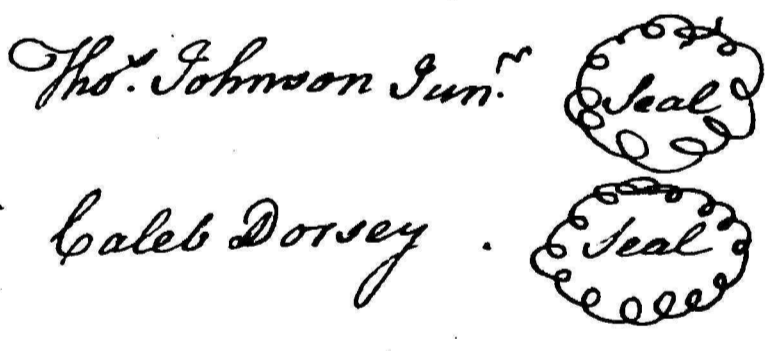 Thos. Johnson Junr. Seal
Caleb Dorsey . Seal